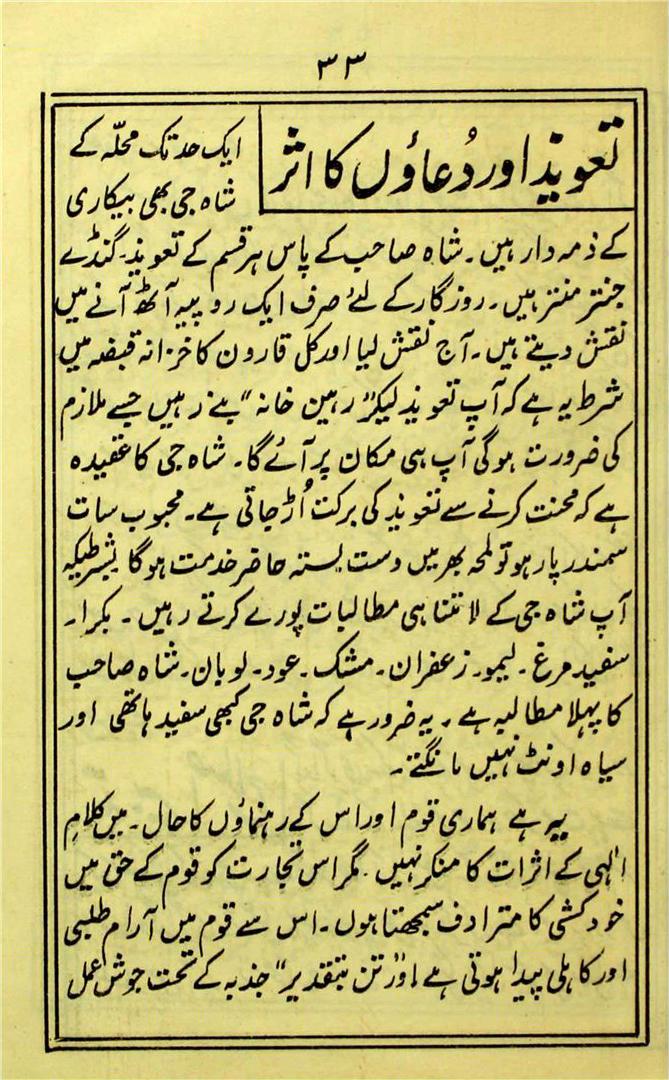 ۳۳
تعویذ اور دُعاؤں کا اثر
ایک حد تک محلّہ کے
شاہ جی بھی بیکاری
کے ذمہ دار ہیں۔ شاہ صاحب کے پاس ہر قسم کے تعویذ۔ گنڈے
جنتر منتر ہیں۔ روزگار کے لئے صرف ایک روپیہ آٹھ آنے میں
نقش دیتے ہیں۔ آج نقش لیا اور کل قارون کا خزانہ قبضہ میں
شرط یہ ہے کہ آپ تعویذ لیکر "رہین خانہ" بنے رہیں جسے ملازم
کی ضرورت ہوگی آپ ہی مکان پر آئے گا۔ شاہ جی کا عقیدہ
ہے کہ محنت کرنے سے تعویذ کی برکت اُڑ جاتی ہے۔ محبوب سات
سمندر پار ہو تو لمحہ بھر میں دست بستہ حاضر خدمت ہوگا بشرطیکہ
آپ شاہ جی کے لا متناہی مطالبات پورے کرتے رہیں۔ بکرا۔
سفید مرغ۔ لیمو۔ زعفران۔ مشک۔ عود۔ لوبان۔ شاہ صاحب
کا پہلا مطالبہ ہے۔ یہ ضرور ہے کہ شاہ جی کبھی سفید ہاتھی اور
سیاہ اونٹ نہیں مانگتے۔
یہ ہے ہماری قوم اور اس کے رہنماؤں کا حال۔ میں کلامِ
الٰہی کے اثرات کا منکر نہیں۔ مگر اس تجارت کو قوم کے حق میں
خودکشی کا مترادف سمجھتا ہوں۔ اس سے قوم میں آرام طلبی
اور کاہلی پیدا ہوتی ہے اور "تن بتقدیر" جذبہ کے تحت جوش عمل